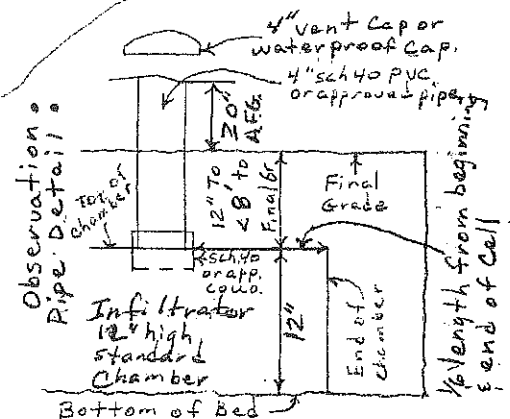 4" vent Cap or
waterproof Cap.
4" sch 40 PVC.
or approved pipe
Observation
Pipe Detail.
20"
A.F.G.
Top of
Chamber
12" To
<8' to
Final Gr
Final
Grade
sch 40
or app.
Infiltrator
12" high
standard
Chamber
12"
End of
chamber
1/6 length from beginning
& end of Cell
Bottom of Bed